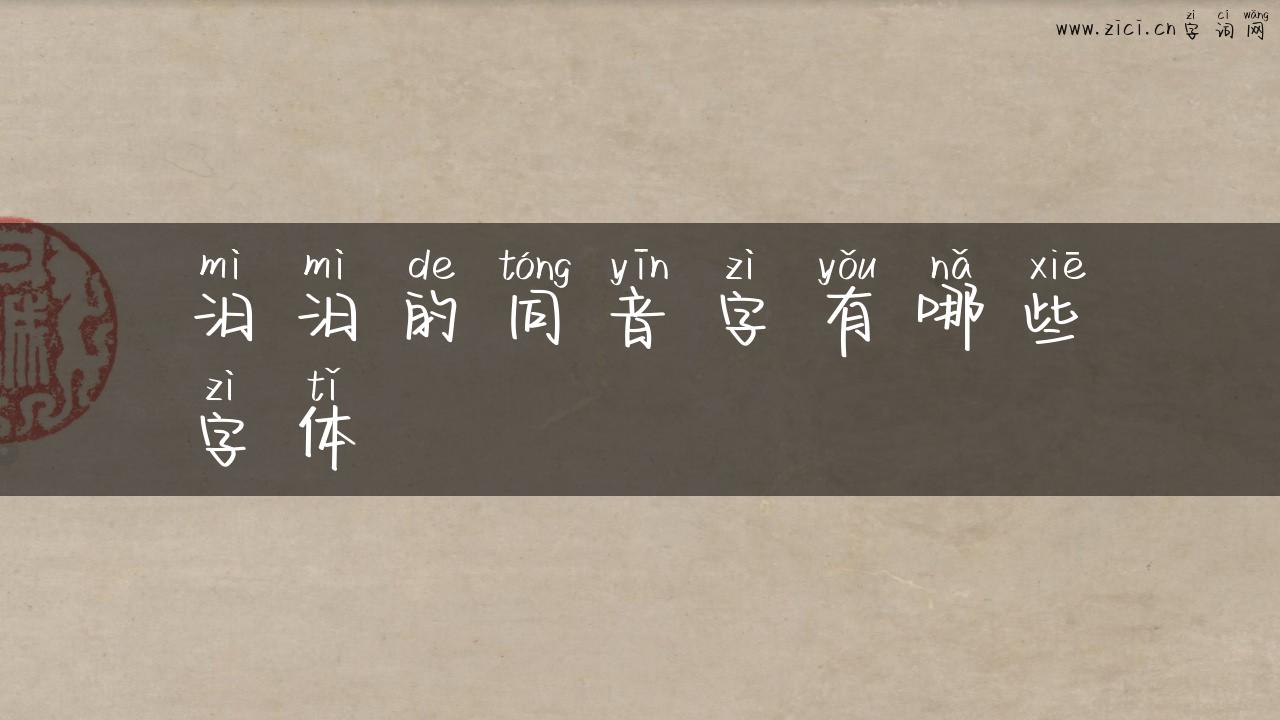 zì cí wǎng
www.zici.cn 字 词 网
mì mì de tóng yīn zì yǒu nǎ xiē
汨 汨 的 同 音 字 有 哪 些
zì tǐ
字 体